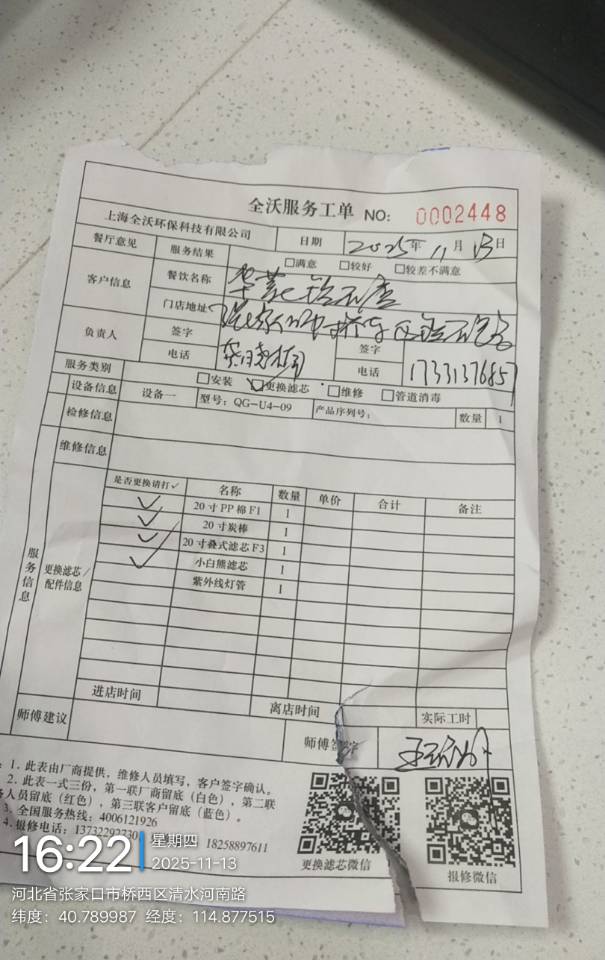 全沃服务工单 NO: 0002448
上海全沃环保科技有限公司 日期 2025年11月13日
餐厅意见 服务结果 □满意 □较好 □较差不满意
客户信息 餐饮名称
门店地址
负责人 签字 签字
电话 电话 17331376857
服务类别 □安装 □更换滤芯 □维修 □管道消毒
设备信息 设备一 型号: QG-U4-09 产品序列号: 数量 1
检修信息
维修信息
服务信息 更换滤芯/配件信息
是否更换请打✓ 名称 数量 单价 合计 备注
✓ 20寸PP棉F1 1
✓ 20寸炭棒 1
✓ 20寸叠式滤芯F3 1
✓ 小白熊滤芯 1
紫外线灯管 1
进店时间 离店时间 实际工时
师傅建议 师傅签字
1. 此表由厂商提供，维修人员填写，客户签字确认。
2. 此表一式三份，第一联厂商留底（白色），第二联
人员留底（红色），第三联客户留底（蓝色）。
3. 全国服务热线: 4006121926
4. 报修电话: 18258897611
更换滤芯微信 报修微信
16:22 星期四
2025-11-13
河北省张家口市桥西区清水河南路
纬度: 40.789987 经度: 114.877515